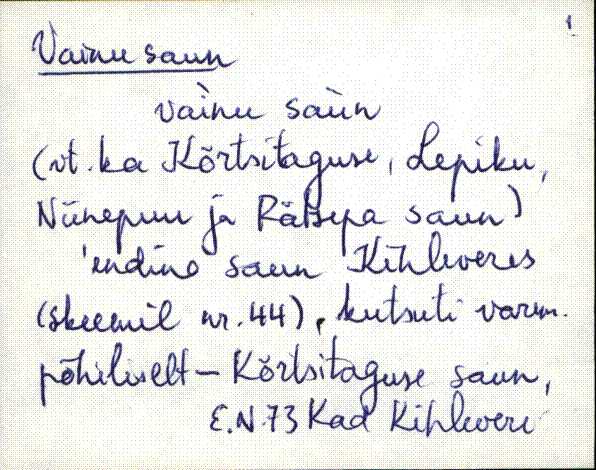 1
Vainu saun
vàinu saùn
(vt. ka Kõrtsitaguse, Lepiku,
Niinepuu ja Rätsepa saun)
'endine saun Kihlveres
(skeemil nr. 44), kutsuti varem.
põhiliselt – Kõrtsitaguse saun,
E.N 73 Kad Kihlvere